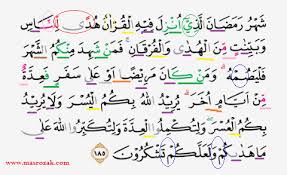 شَهْرُ رَمَضَانَ الَّذِيْٓ اُنْزِلَ فِيْهِ الْقُرْاٰنُ هُدًى لِّلنَّاسِ
وَبَيِّنٰتٍ مِّنَ الْهُدٰى وَالْفُرْقَانِۚ فَمَنْ شَهِدَ مِنْكُمُ الشَّهْرَ
فَلْيَصُمْهُۗ وَمَنْ كَانَ مَرِيْضًا اَوْ عَلٰى سَفَرٍ فَعِدَّةٌ
مِّنْ اَيَّامٍ اُخَرَۗ يُرِيْدُ اللّٰهُ بِكُمُ الْيُسْرَ وَلَا يُرِيْدُ
بِكُمُ الْعُسْرَۖ وَلِتُكْمِلُوا الْعِدَّةَ وَلِتُكَبِّرُوا اللّٰهَ عَلٰى
مَا هَدٰىكُمْ وَلَعَلَّكُمْ تَشْكُرُوْنَ ١٨٥
www.masrozak.com